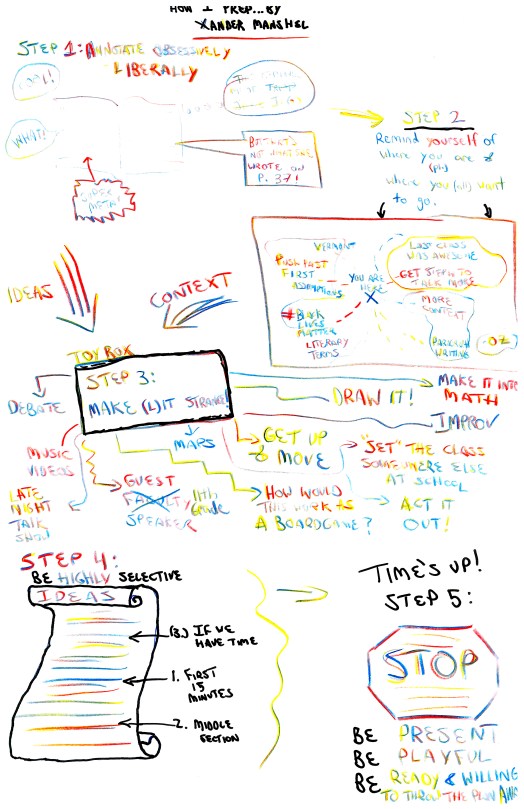 HOW I PREP... BY
XANDER MANSHEL
STEP 1: ANNOTATE OBSESSIVELY
LIBERALLY
COOL!
WHAT!
BUT THAT'S
NOT WHAT SHE
WROTE ON
P. 37!
STEP 2
Remind yourself of
where you are &
(pl)
where you (all) want
to go.
VERMONT
PUSH PAST
FIRST
ASSUMPTIONS
#BLACK
LIVES
MATTER
LITERARY
TERMS
YOU ARE
HERE
X
LAST CLASS
WAS AWESOME
GET STEPH TO
TALK MORE
MORE
CONTEXT
WRITING
OZ
IDEAS
CONTEXT
TOY BOX
STEP 3:
MAKE (L)IT STRANGE!
DEBATE
MUSIC
VIDEOS
LATE
NIGHT
TALK
SHOW
GUEST
FACULTY 11th GRADE
SPEAKER
MAPS
GET UP
& MOVE
DRAW IT!
MAKE IT INTO
MATH
IMPROV
"SET" THE CLASS
SOMEWHERE ELSE
AT SCHOOL
HOW WOULD
THIS WORK AS
A BOARDGAME?
ACT IT
OUT!
STEP 4:
BE HIGHLY SELECTIVE
IDEAS
(3.) IF WE
HAVE TIME
1. FIRST
15
MINUTES
2. MIDDLE
SECTION
TIME'S UP!
STEP 5:
STOP
BE PRESENT
BE PLAYFUL
BE READY & WILLING
TO THROW THE PLAN AWAY